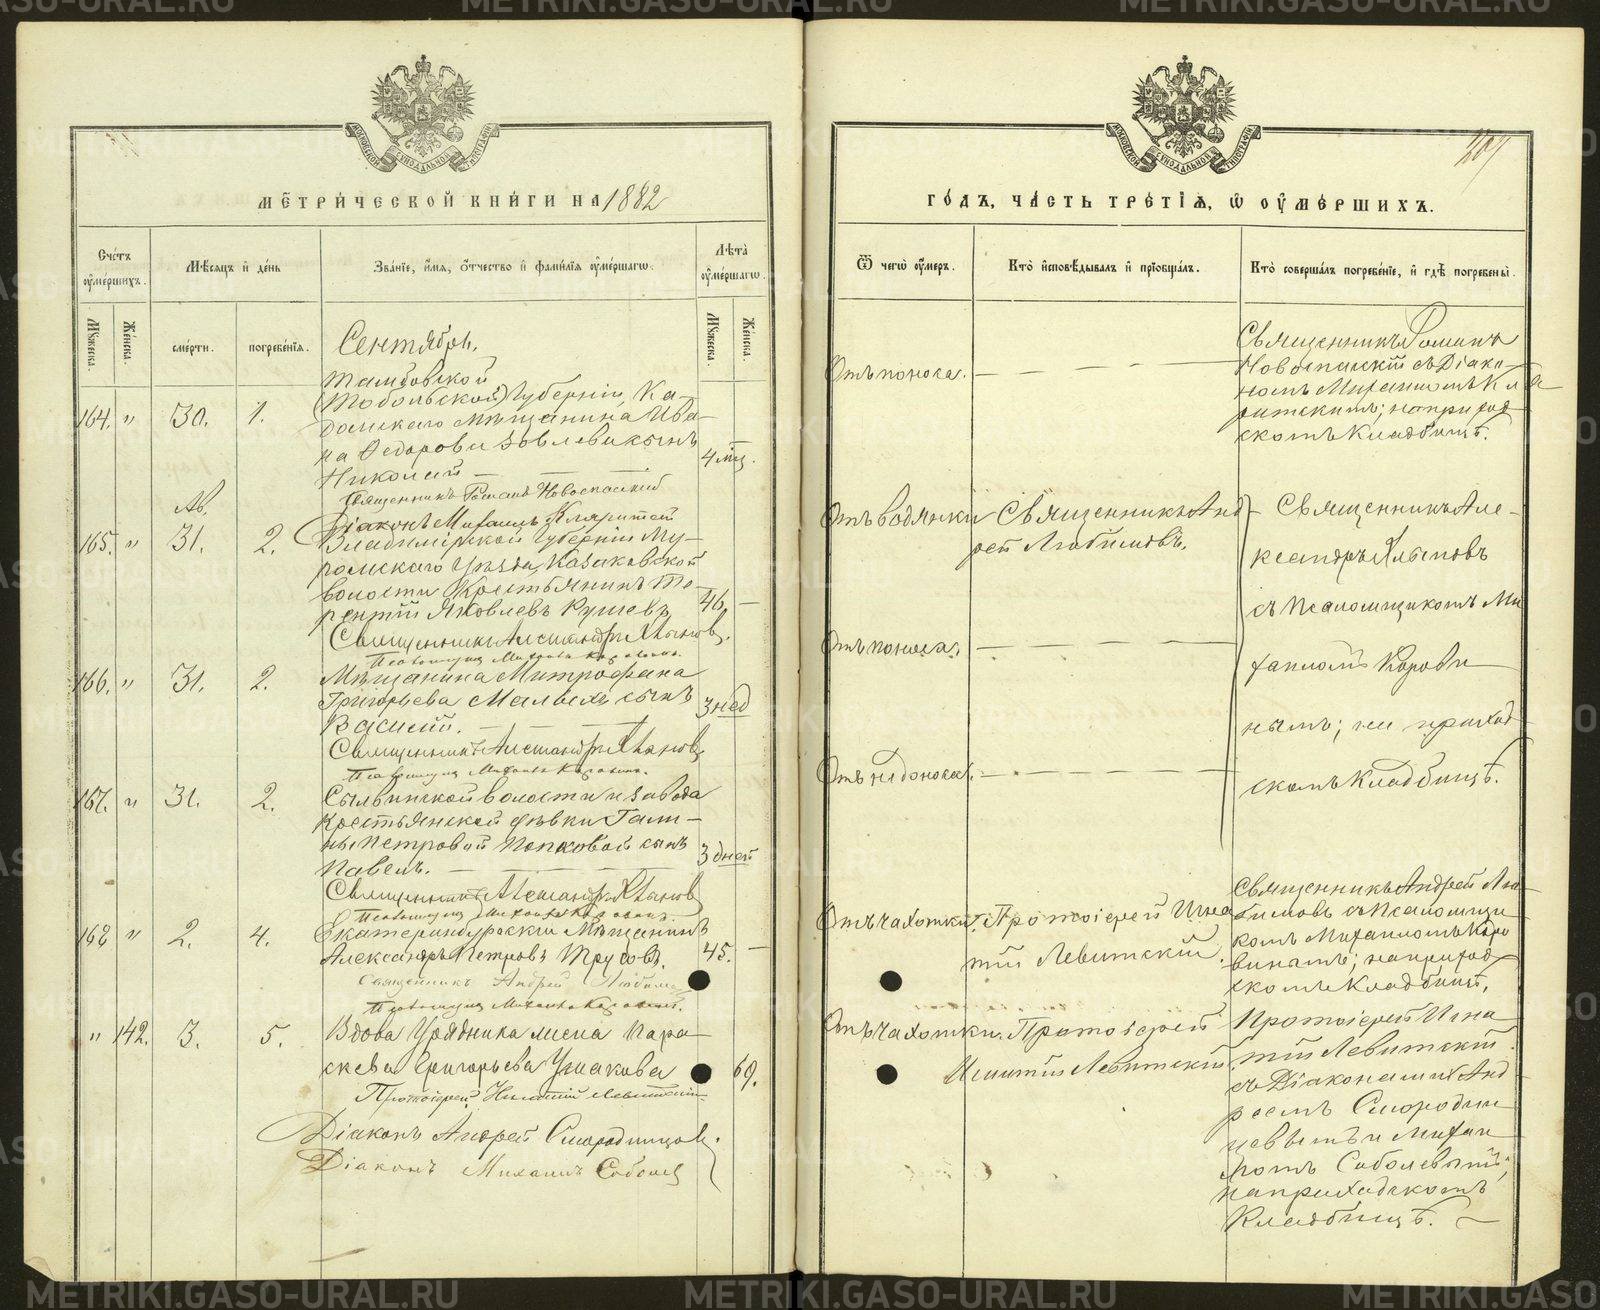 МЕТРИ́ЧЕСКОЙ КНИ́ГИ НА 1882
Сче́тъ ᲂу҆ме́ршихъ.
Мѣ́сяцъ и҆ де́нь
Зва́нїе, и҆́мя, ѻ҆́тчество и҆ фами́лїя ᲂу҆ме́ршагѡ.
Лѣ́та ᲂу҆ме́ршагѡ.
Мꙋ́жеска.
Же́нска.
сме́рти.
погребе́нїѧ.
Мꙋ́жеска.
Же́нска.
Сентябрь.
Тамбовской
164. " 30. 1.
(Тобольской) Губерніи, Ка-
домскаго Мѣщанина Ива-
на Ѳедорова сынъ
Николай — — —
4 мц.
Священникъ Романъ Новоспаскій
Діаконъ Михаилъ
Ав.
165. " 31. 2.
Владимірской Губерніи Му-
ромскаго Уѣзда, Казаковской
волости Крестьянинъ Те-
рентій Яковлевъ
46. —
Священникъ Александръ Хлыновъ.
Псаломщикъ Михаилъ Коровинъ.
166. " 31. 2.
Мѣщанина Митрофана
Григорьева сынъ
Василій. — — —
3 нед
Священникъ Александръ Хлыновъ
Псаломщикъ Михаилъ Коровинъ.
167. " 31. 2.
Сылвинской волости и завода
Крестьянской дѣвки Гали-
ны Петровой Попковой сынъ
Павелъ. — — —
3 дней
Священникъ Александръ Хлыновъ
Псаломщикъ Михаилъ Коровинъ.
168 " 2. 4.
Екатеринбургскій Мѣщанинъ
Александръ Петровъ Трусовъ.
45. —
Священникъ Андрей Любимовъ
Псаломщикъ Михаилъ Коровинъ.
" 142. 3. 5.
Вдова Урядника жена Пара-
скева Григорьева Ушакова
69.
Протоіерей Игнатій Левитскій
Діаконъ Андрей Смородинцовъ.
Діаконъ Михаилъ Соболевъ
ГО́ДЪ, ЧА́СТЬ ТРЕ́ТЇѦ, Ѡ҆ ОУ҆МЕ́РШИХЪ.
207
Ѿ чегѡ̀ ᲂу҆́меръ.
Кто̀ и҆сповѣ́дывалъ и҆ прїѡбща́лъ.
Кто̀ соверша́лъ погребе́нїе, и҆ гдѣ̀ погребены̀.
Отъ поноса. — — — —
Священникъ Романъ
Новоспаскій съ Діако-
номъ Михаиломъ
на приход-
скомъ Кладбищѣ.
Отъ водянки
Священникъ Анд-
рей Любимовъ.
Священникъ Але-
ксандръ Хлыновъ
съ Псаломщикомъ Ми
хаиломъ Корови
нымъ; на приход
скомъ Кладбищѣ.
Отъ поноса. — — — —
Отъ недоноса. — — — —
Отъ чахотки.
Протоіерей Игна
тій Левитскій.
Священникъ Андрей Лю
бимовъ съ Псаломщи
комъ Михаиломъ Коро
винымъ; на приход
скомъ Кладбищѣ.
Отъ чахотки.
Протоіерей
Игнатій Левитскій
Протоіерей Игна
тій Левитскій
съ Діаконами Анд
реемъ Смородин
цевымъ и Михаи
ломъ Соболевымъ;
на приходскомъ
Кладбищѣ. —
METRIKI.GASO-URAL.RU